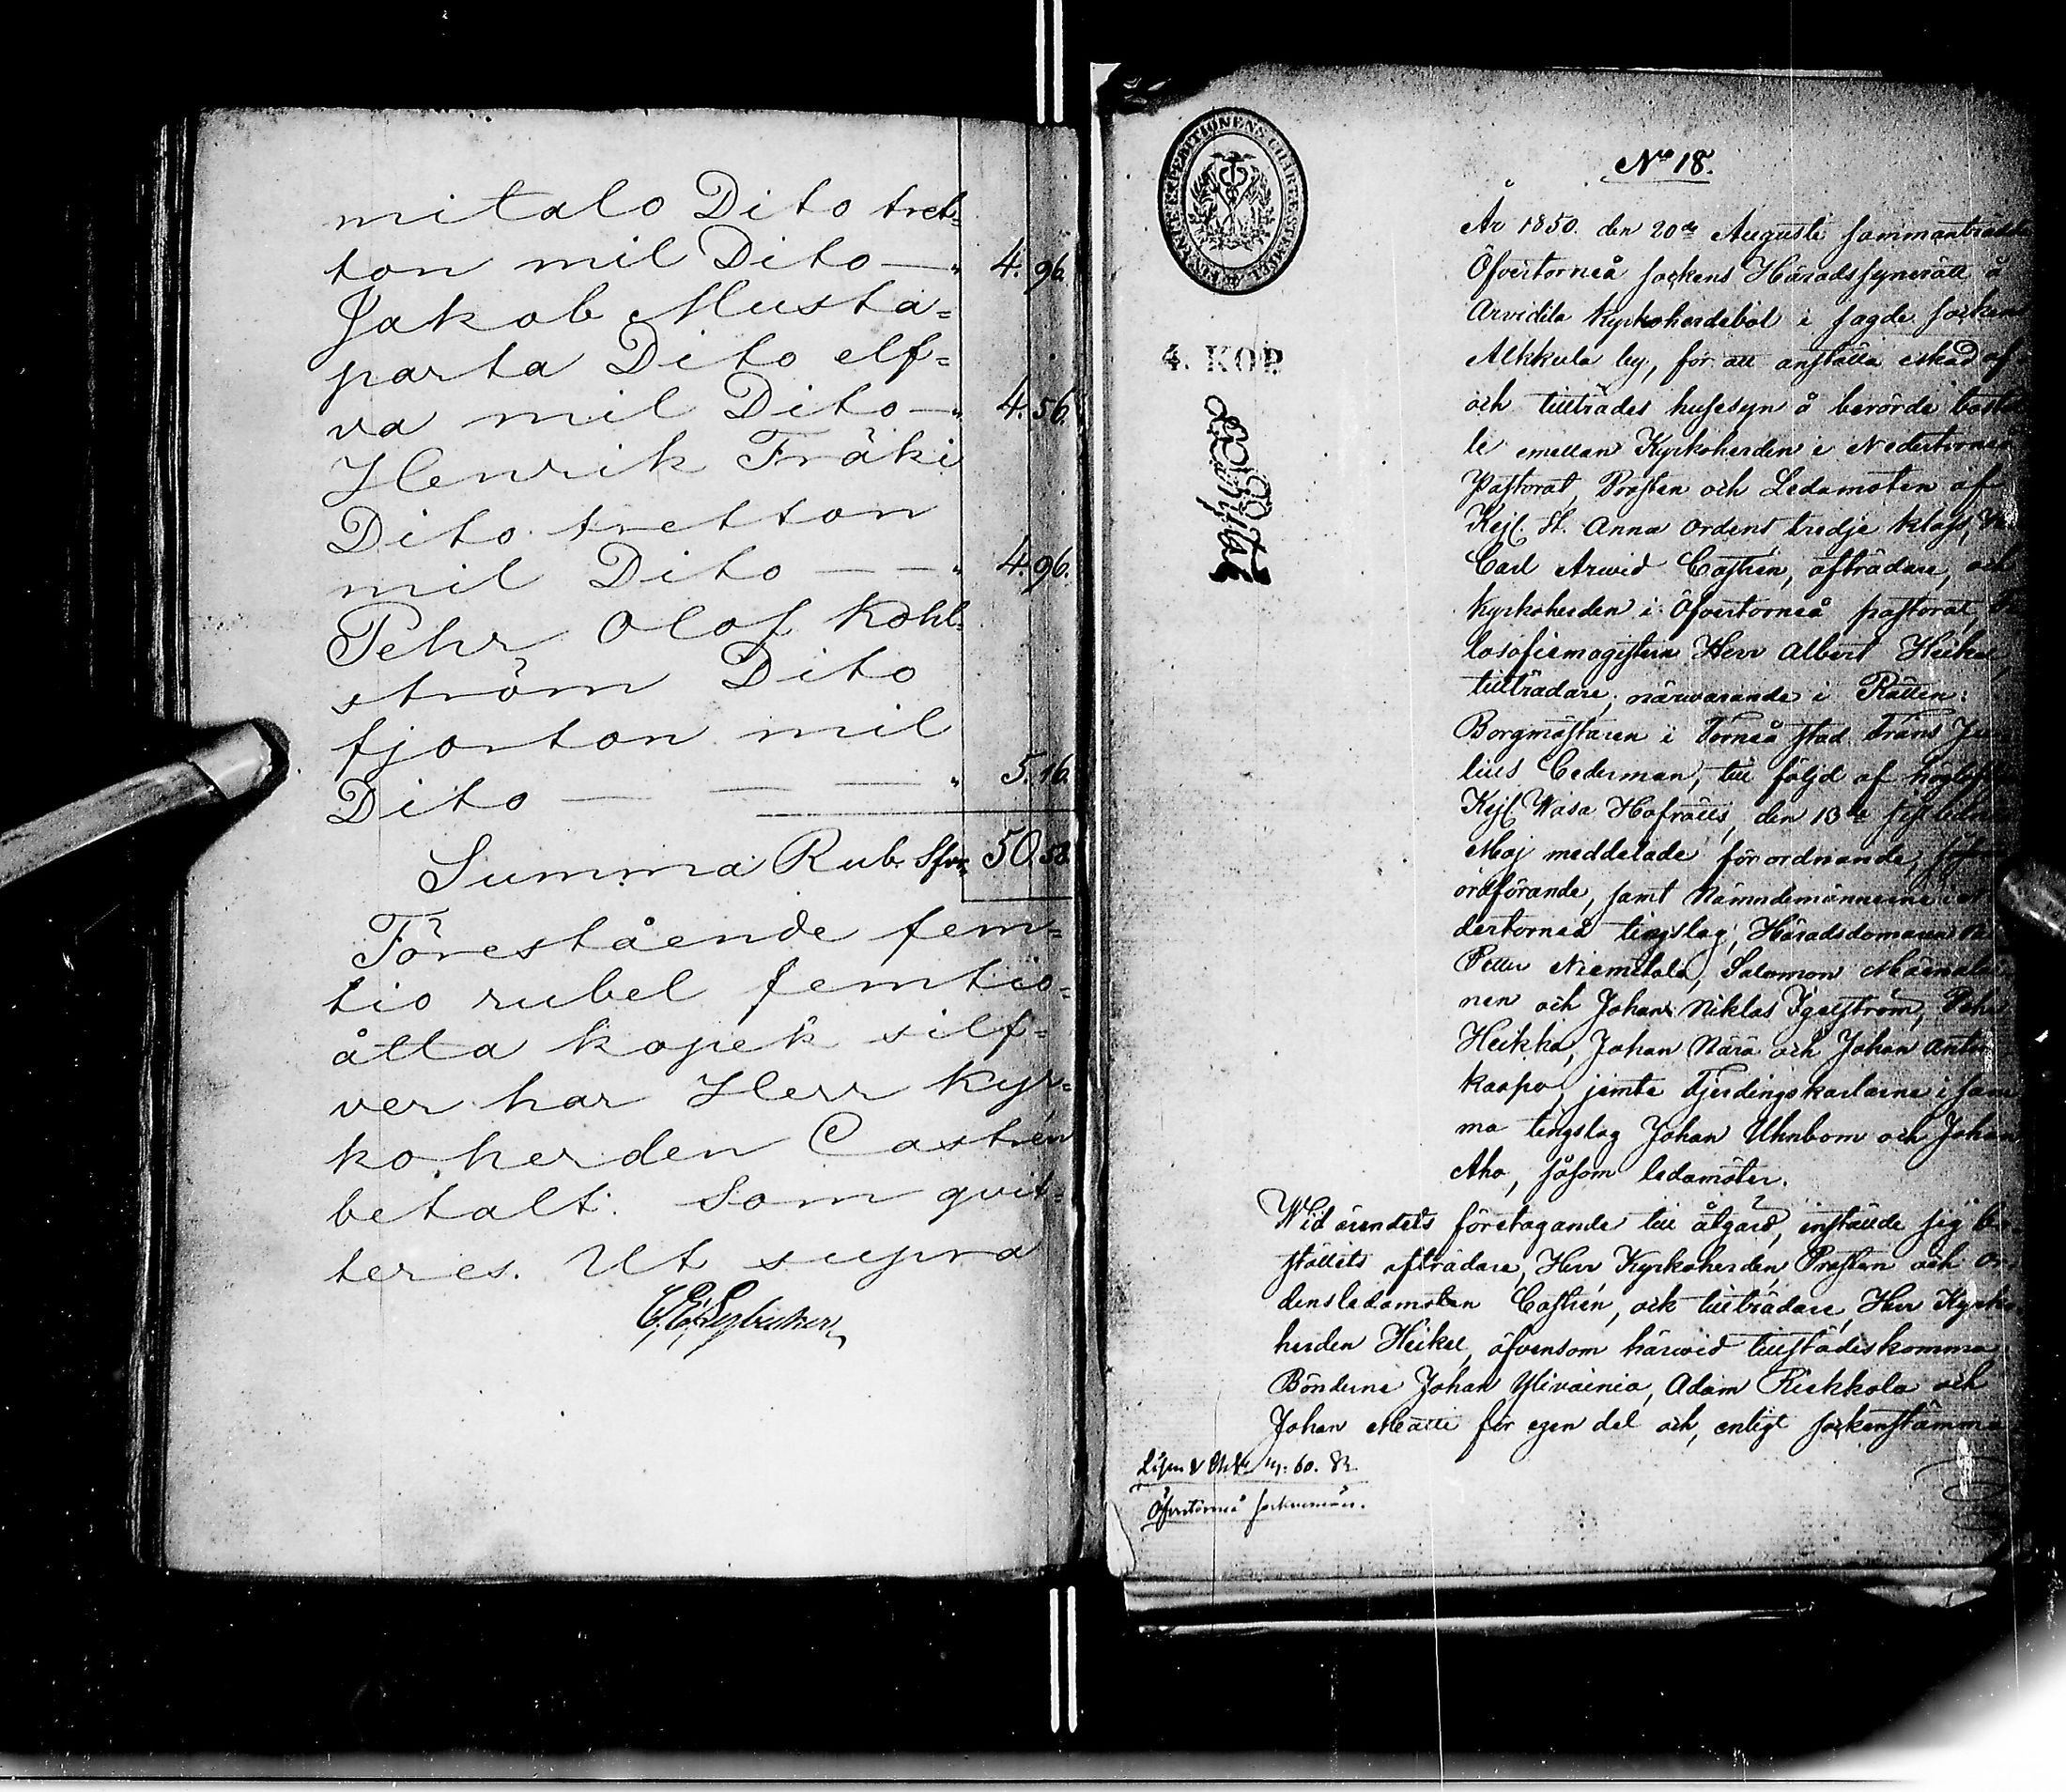 mitalo Dito tret-
ton mil Dito — " 4. 96.
Jakob Musta-
parta Dito elf-
va mil Dito — " 4. 56.
Henrik Fräki
Dito tretton
mil Dito — — " 4. 96.
Pehr Olof Kohl-
ström Dito
fjorton mil
Dito — — — " 5. 16.
Summa Rub. Sfvr 50. 58.
Förestående fem-
tio rubel femtio-
åtta kopek silf-
ver har Herr Kyr-
koherden Castrén
betalt: Som qvit-
teres. Ut supra
FINANCE EXPEDITIONENS CHARTÆ STEMPEL
4. KOP.
No 18.
År 1850. den 20de Augusti sammanträdde
Öfvertorneå sockens Häradssynerätt å
Arvidila Kyrkoherdebol i sagde socken
Alkkula by, för att anställa
och tillträdes husesyn å berörde
le emellan Kyrkoherden i Nedertorneå
Pastorat, Prosten och Ledamoten af
Kejs. St. Anna Ordens tredje klass,
Carl Arwid Castrén, afträdare, och
Kyrkoherden i Öfvertorneå pastorat,
losofiemagistern Herr Albert Heikel,
tillträdare; närwarande i Rätten:
Borgmästaren i Torneå stad Frans Ju-
lius Cederman, till följd af höglofl.
Kejs. Wasa Hofrätts, den 13de sistledne
Maj meddelade förordnande, såsom
ordförande, samt Nämndemännerne i
dertorneå tingslag, Häradsdomaren
Petter Niemitalo, Salomon
nen och Johan Niklas Igelström, Pehr
Heikka, Johan Närä och Johan Anton
Kaspo, jemte Fjerdingskarlarne i sam
ma tingslag Johan Uhnbom och Johan
Aho, såsom ledamöter.
Wid ärendets företagande till åtgärd, inställde sig bo-
ställets afträdare, Herr Kyrkoherden, Prosten och Or-
densledamoten Castrén, och tillträdare, Herr Kyrko-
herden Heikel, äfvensom härwid tillstädeskomma
Bönderne Johan Ylivainio, Adam Riekkola och
Johan Matti för egen del och, enligt sockenstämmo
Öfvertorneå sockenmän.